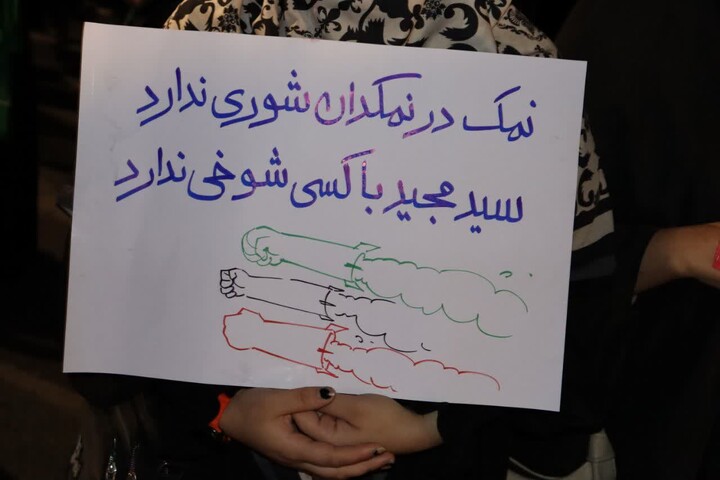 نمک در نمکدان شوری ندارد
سید مجید با کسی شوخی ندارد